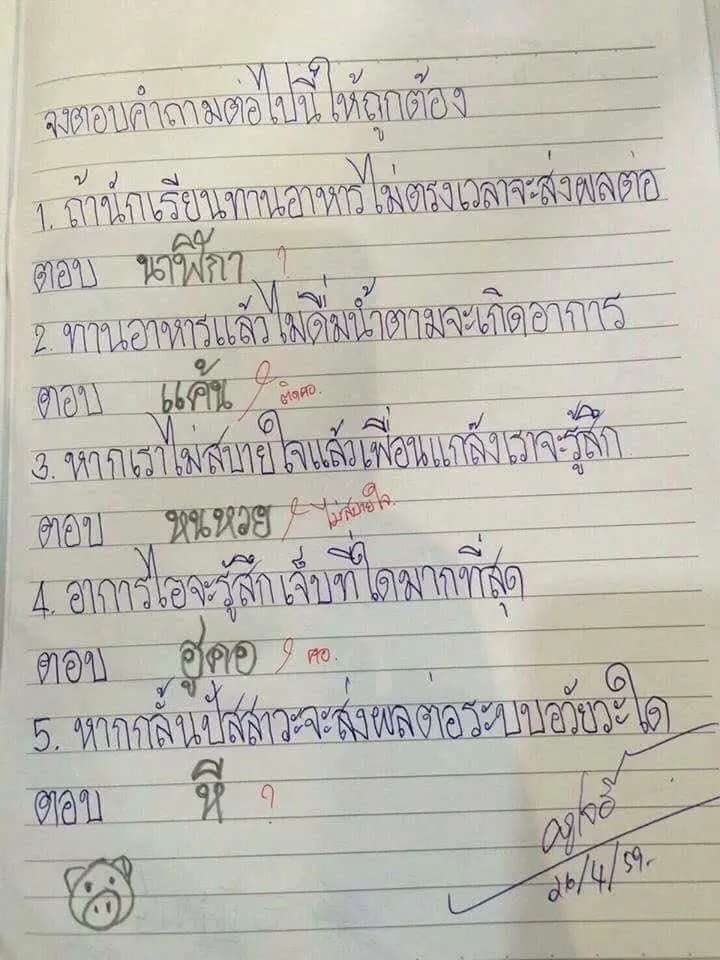 จงตอบคำถามต่อไปนี้ให้ถูกต้อง
1. ถ้านักเรียนทานอาหารไม่ตรงเวลาจะส่งผลต่อ
ตอบ นาฬิกา ?
2. ทานอาหารแล้วไม่ดื่มน้ำตามจะเกิดอาการ
ตอบ แค้น ติดคอ.
3. หากเราไม่สบายใจแล้วเพื่อนแกล้งเราจะรู้สึก
ตอบ หนหวย ไม่สบายใจ.
4. อาการไอจะรู้สึกเจ็บที่ใดมากที่สุด
ตอบ ฮูคอ คอ.
5. หากกลั้นปัสสาวะจะส่งผลต่อระบบอวัยวะใด
ตอบ หี ?
26/4/59.